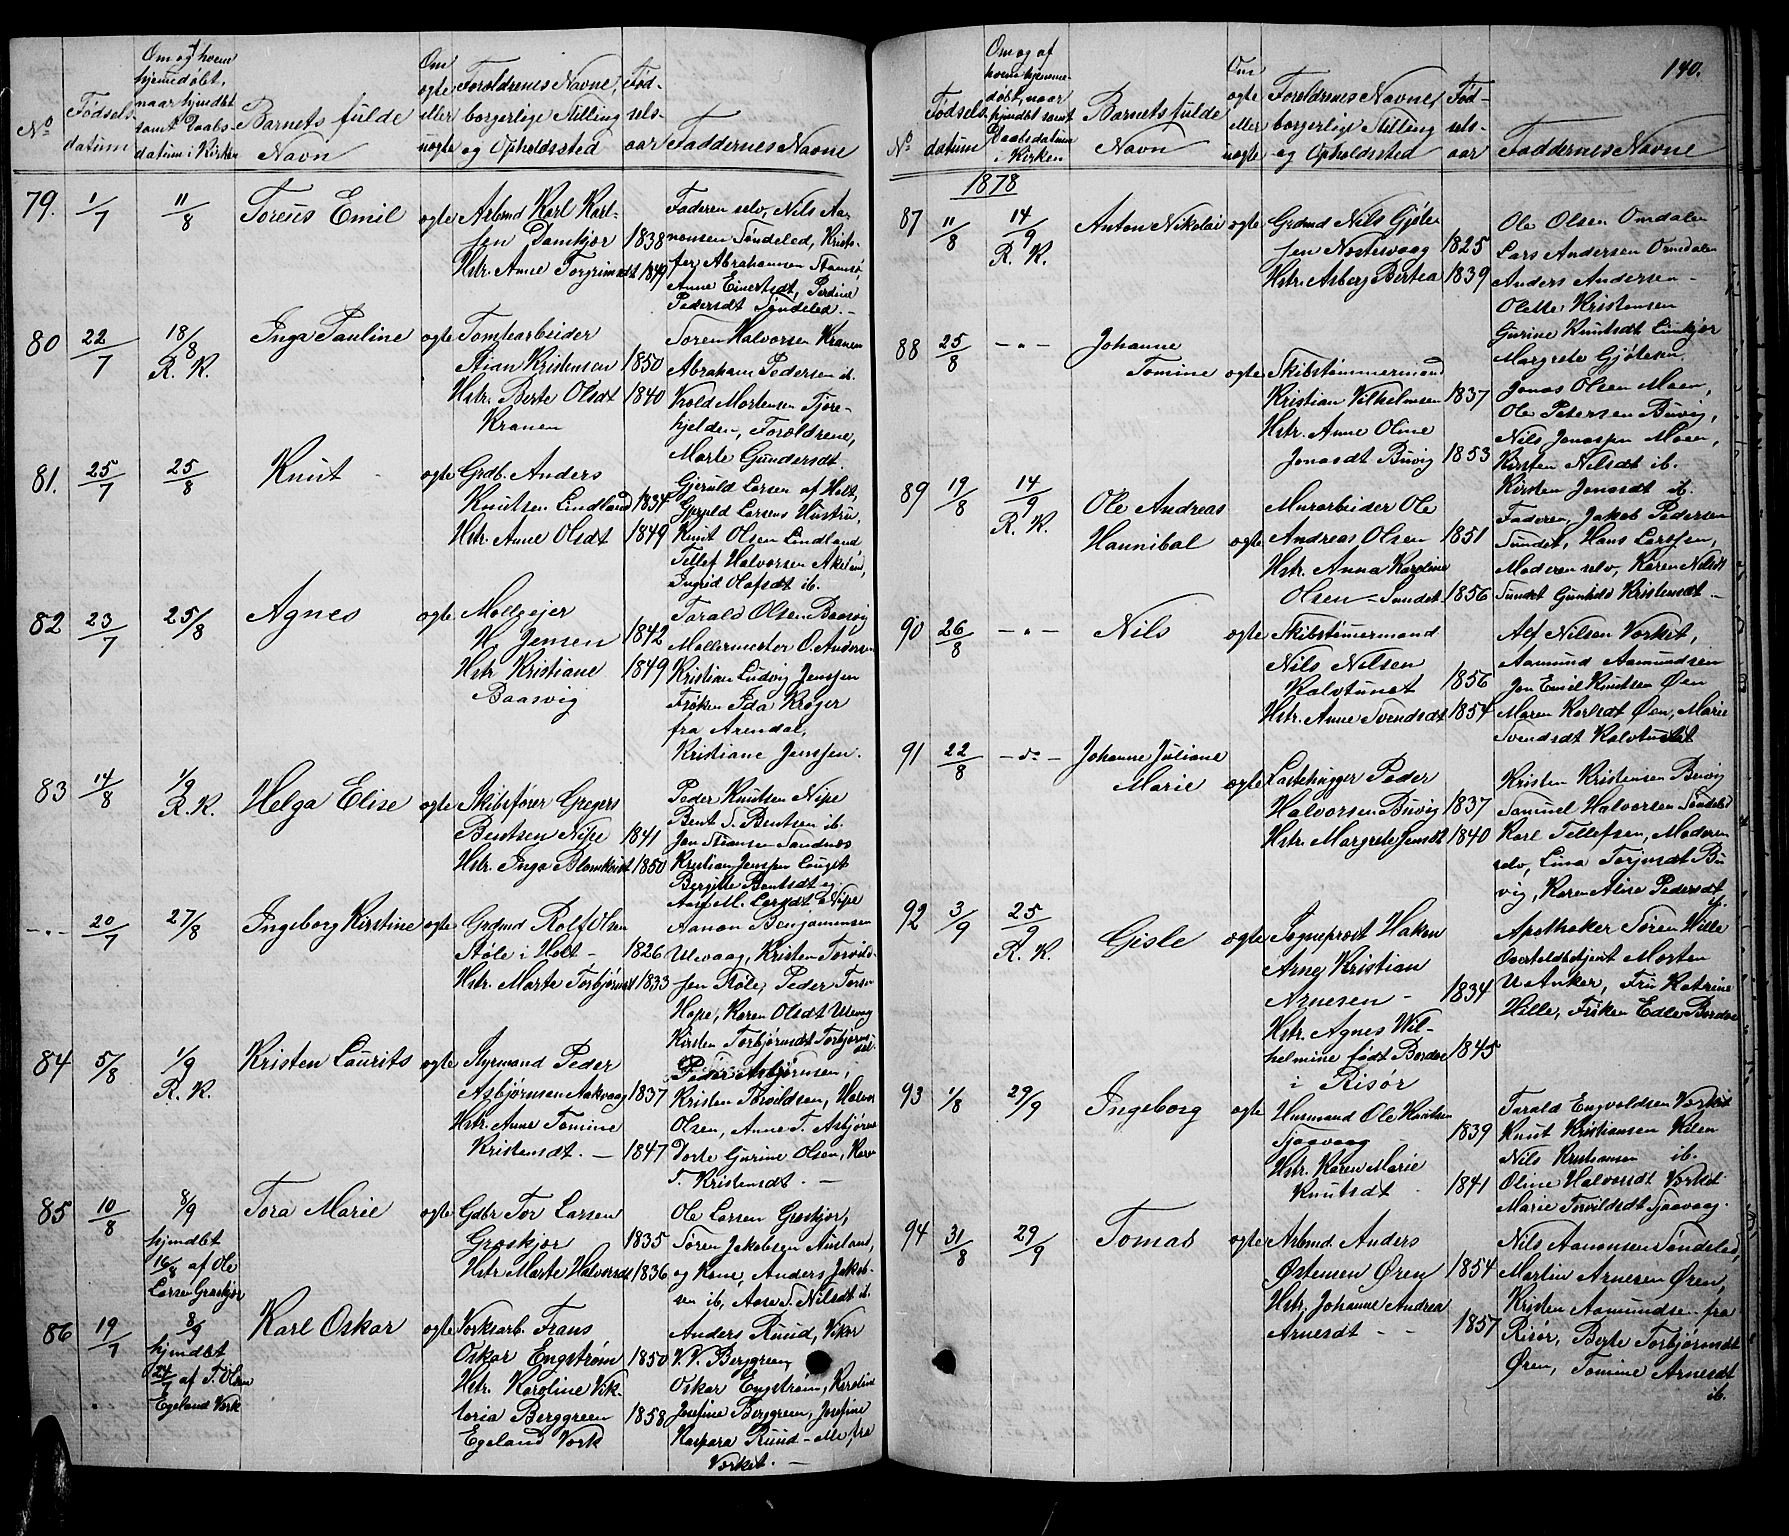 No
Fødsels-
datum
Om og af hvem
hjemmedøbt,
naar hjmdbt
samt Daabs-
datum i Kirken
Barnets fulde
Navn
Om
ægte
eller
uægte
Forældrenes Navne,
borgerlige Stilling
og Opholdssted
Fød-
sels-
aar
Faddernes Navne
79.
1/7
11/8
Toreus Emil
ægte
Arbmd Karl Karl-
sen Damkjør 1838
Hstr. Anne Torgrimsdt 1849
Faderen selv, Nils Aa-
nonsen Søndeled, Kristo-
fer Abrahamsen Stamsø,
Anne Einertsdt, Perdine
Pedersdt Søndeled. -
80
22/7
18/8
R. K.
Inga Pauline
ægte
Tomtearbeider
Stian Kristensen 1850
Hstr. Berte Olsdt 1840
Kranen
Søren Halvorsen Kranen
Abraham Pedersen ib.
Krold Mortensen Fjøre-
kjelden, Forældrene,
Marte Gundersdt.
81.
25/7
25/8
Knut
ægte
Grdb. Anders
Knutsen Lindland 1834
Hstr. Anne Olsdt 1849
Gjeruld Larsen af Holt,
Gjeruld Larsens Hustru,
Knut Olsen Lindland
Tellef Halvorsen
Ingrid Olafsdt ib.
82
23/7
25/8
Agnes
ægte
Møllereier
H. Jensen 1842
Hstr Kristiane 1849
Baasvig
Tarald Olsen Baasvig
Møllermester O. Andersen
Kristian Ludvig Jenssen
Frøken Ida Krøger
fra Arendal,
Kristiane Jenssen.
83
14/8
1/9
R. K.
Helga Elise
ægte
Skibsfører Gregers
Bentsen Nipe 1841
Hstr. Inga Blomkvist 1850
Peder Knutsen Nipe
Bent T. Bentsen ib.
Jan Stiansen Sandnæs
Kristian Jenssen Lauget
Bergitte Bentsdt og
Anne M. Larsdt Nipe
-"-
20/7
27/8
Ingeborg Kirstine
ægte
Grdmd Rolf Olsen
Støle i Holt - 1826
Hstr. Marte Torbjørnsdt 1833
Aanon Benjaminsen
Ulevaag, Kristen Torvild-
sen Støle, Peder Torsen
Hope, Karen Olsdt Ulevaag
Kirsten Torbjørnsdt
84
5/8
1/9
R. K.
Kristen Laurits
ægte
Styrmand Peder
Asbjørnsen Aakvaag 1837
Hstr. Anne Tomine
Kristensdt. - 1847
Peder Asbjørnsen,
Kristen Torvildsen, Halvor
Olsen, Anne T. Asbjørns
Dorte Gurine Olsen, Karen
T. Kristensdt. -
85
10/8
8/9
hjmdbt
16/8 af Ole
Larsen Graskjør
Tora Marie
ægte
Gdbr Tor Larsen
Graskjør 1835
Hstr Marte Halvorsdt 1836
Ole Larsen Graskjør,
Søren Jakobsen Ausland,
og Kone, Anders Jakob-
sen ib, Aase T. Nilsdt ib.
86
19/7
8/9
hjmdbt
24/7 af T. Olsen
Egeland Værk
Karl Oskar
ægte
Værksarb. Frans
Oskar Engstrøm 1850
Hstr. Karoline Vik-
toria Berggreen 1858
Egeland Værk
Anders Ruud, Viktor
V. V. Berggreen,
Oskar Engstrøm, Karoline
Josefine Berggreen, Josefine
Kaspara Ruud - alle fra
Værket. -
140.
No
Fødsels-
datum
Om og af
hvem hjemme-
døbt, naar
hjmdbt samt
Daabsdatum
i Kirken
Barnets fulde
Navn
Om
ægte
eller
uægte
Forældrenes Navne,
borgerlige Stilling
og Opholdssted
Fød-
sels-
aar
Faddernes Navne
1878
87
11/8
14/9
R. K.
Anton Nikolai
ægte
Grdmd Nils Gjøte-
sen Nortevaag 1825
Hstr. Asberg Bertea 1839
Ole Olsen Omdalen
Lars Andersen Omdalen
Anders Andersen -
Olette Kristensen
Gurine Knutsdt Limkjør
Margrete Gjøtesen.
88
25/8
- " -
Johanne
Tomine
ægte
Skibstømmermand
Kristian Vilhelmsen 1837
Hstr. Anne Oline
Jonasdt Buvig 1853
Jonas Olsen Moen,
Ole Petersen Buvig,
Nils Jonassen Moen,
Kirsten Nilsdt ib.
Kirsten Jonasdt ib.
89
19/8
14/9
R. K.
Ole Andreas
Hannibal
ægte
Murarbeider Ole
Andreas Olsen 1851
Hstr. Anna Karoline
Olsen - Sundet 1856
Faderen, Jakob Pedersen
Sundet, Hans Larssen,
Moderen selv, Karen Nilsdt
Sundet Gunhild Kristensdt -
90
26/8
- " -
Nils
ægte
Skibstømermand
Nils Nilsen
Kalvtunet 1856
Hstr. Anne Svendsdt 1854
Alf Nilsen Værket,
Aamund Aamundsen
Jon Emil Knutsen Øen
Maren Karlsdt Øen, Marie
Svendsdt Kalvtunet
91
22/8
- do -
Johanne Juliane
Marie
ægte
Lastehugger Peder
Halvorsen Buvig 1837
Hstr. Margrete Jensdt 1840
Kristen Kristensen Buvig
Samuel Halvorsen Søndeled
Karl Tellefsen, Moderen
selv, Lina Torjusdt Bu-
vig, Karen Aline Pedersdt
ib.
92
3/9
25/9
R. K.
Gisle
ægte
Sogneprest Haken
Arne Kristian
Arnesen - 1834
Hstr. Agnes Wil-
helmine født Bordoe 1845
i Risør
Apotheker Søren Hille
Overtoldbetjent Morten
U Anker, Fru Katrine
Hille, Frøken Edle Bordoe
93
1/8
29/9
Ingeborg
ægte
Husmand Ole Knutsen
Sjaavaag 1839
Hstr. Karen Marie
Knutsdt 1841
Tarald Engvoldsen Værket
Knut Kristiansen Kilen
Nils Kristiansen ib.
Oline Halvorsdt Værket
Marie Torvildsdt Sjaavaag.
94
31/8
29/9
Tomas
ægte
Arbmd. Anders
Østensen Øren 1854
Hstr. Johanne Andrea
Arnesdt - - 1857
Nils Aanonsen Søndeled,
Martin Arnesen Øren,
Kristen Aamundsen fra
Risør, Berte Torbjørnsdt
Øren, Tomine Arnesdt
ib.